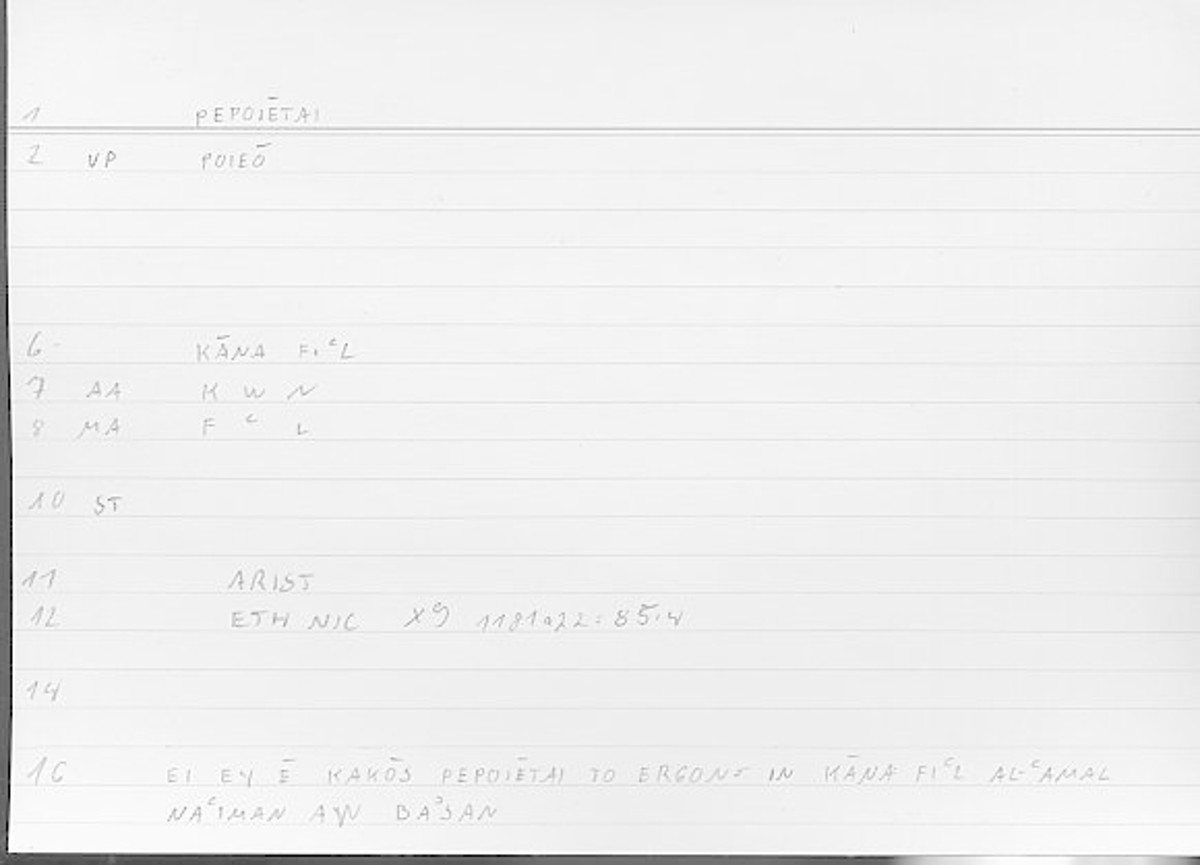 1 PEPOIĒTAI
2 VP POIEŌ
6 KĀNA FIᶜL
7 AA K W N
8 MA F ᶜ L
10 ST
11 ARIST
12 ETH NIC X9 1181a22: 85.4
14
16 EI EY Ē KAKŌS PEPOIĒTAI TO ERGON- IN KĀNA FIᶜL AL-ᶜAMAL
NAᶜIMAN AW BAʾSAN